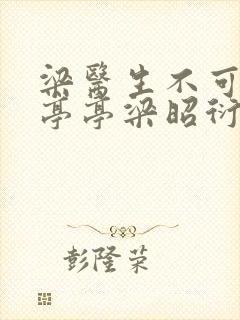 梁醫生不可
亭亭梁昭衍
彭隆荣